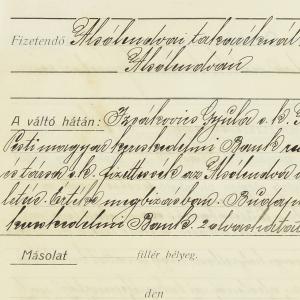 Fizetendő Alsólendvai takarékpénzt
Alsólendván
A váltó hátán: Izsákovics Gyula s. k.
Pesti magyar kereskedelmi Bank
és társa s.k. fizettessék az Alsólendvai
letás. Értéke megbizásban. Budape
kereskedelmi Bank. 2 olvashatatl
Másolat fillér bélyeg.
den